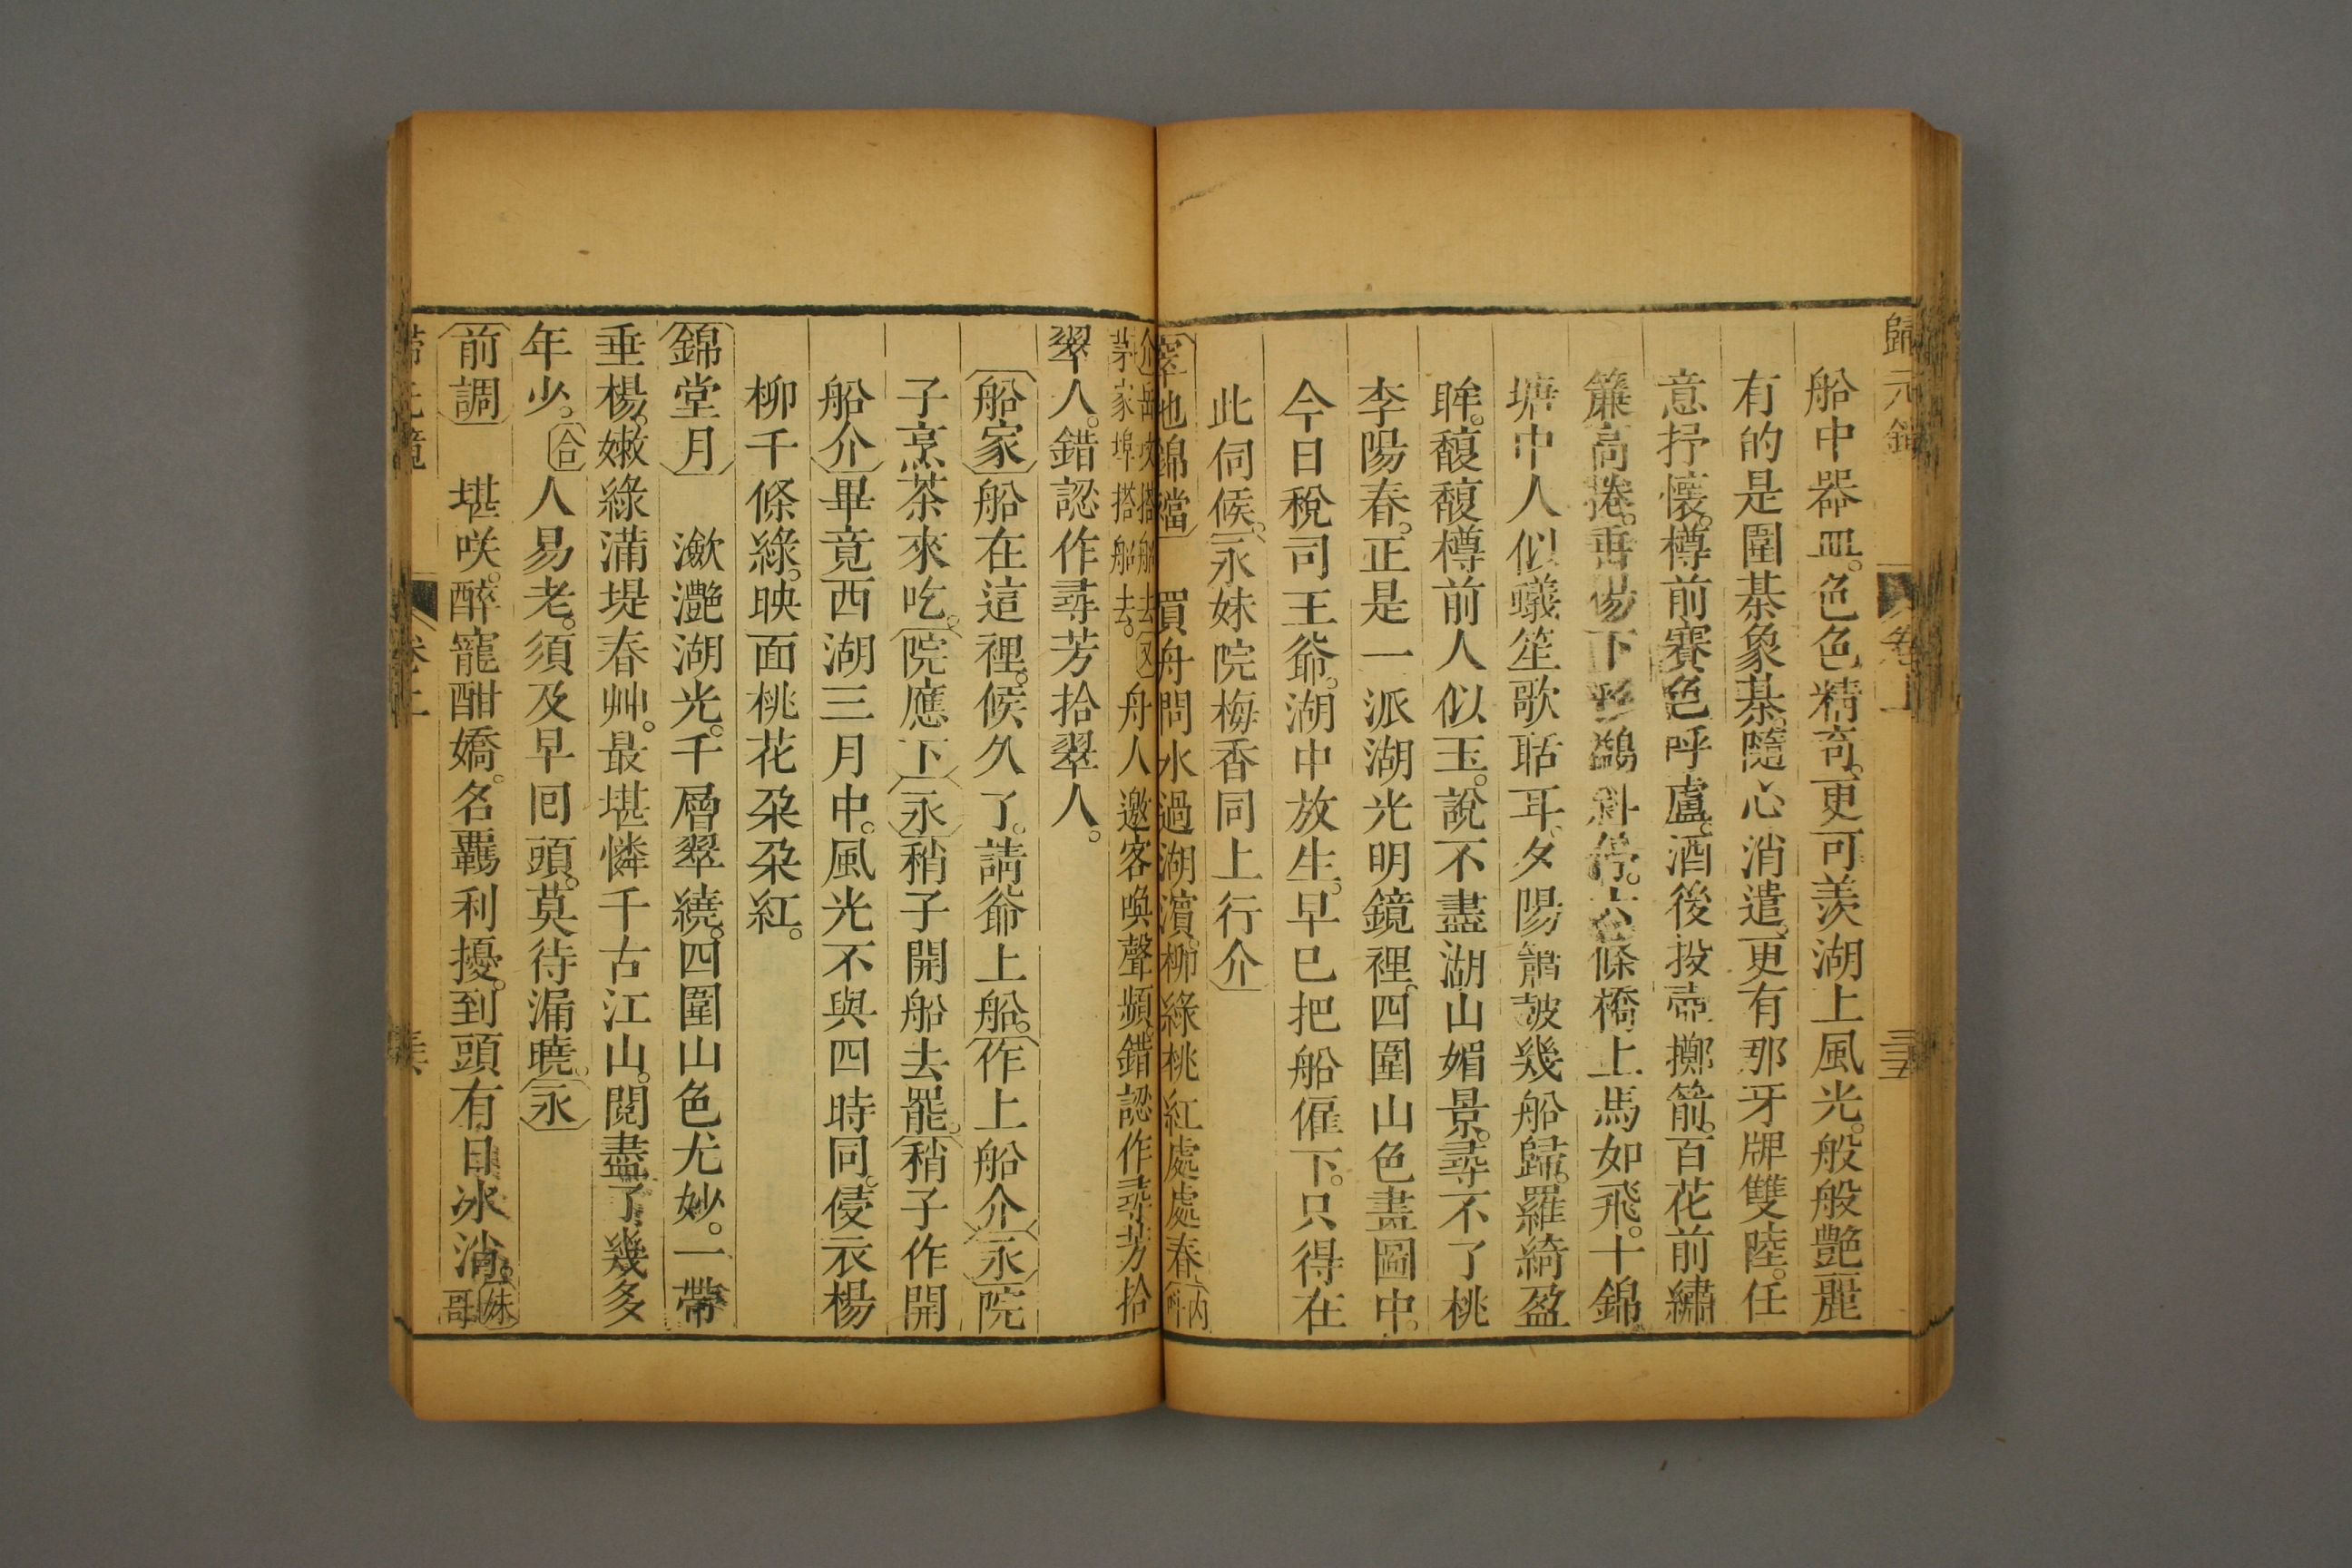 歸元鏡 卷上 三五
船中器皿。色色精奇。更可羨湖上風光。般般艷麗
有的是圍棊象棊。隨心消遣。更有那牙牌雙陸。任
意抒懷。樽前賽色呼盧。酒後投壺擲箭。百花前繡
簾高捲。垂楊下彩鷁斜停。六條橋上馬如飛。十錦
塘中人似蟻。笙歌聒耳。夕陽簫皷幾船歸。羅綺盈
眸。馥馥樽前人似玉。說不盡湖山媚景。尋不了桃
李陽春。正是一派湖光明鏡裡。四圍山色畫圖中。
今日稅司王爺。湖中放生。早已把船僱下。只得在
此伺候。永妹院梅香同上行介
翠地錦襠 買舟問水過湖濱。柳綠桃紅處處春。內
搭船去。又舟人邀客喚聲頻。錯認作尋芳拾
茅家埠搭船去。
翠人。錯認作尋芳拾翠人。
船家船在這裡。候久了。請爺上船。作上船介永院
子烹茶來吃。院應下永稍子開船去罷。稍子作開
船介畢竟西湖三月中。風光不與四時同。侵衣楊
柳千條綠。映面桃花朶朶紅。
錦堂月 瀲灔湖光。千層翠繞。四圍山色尤妙。一帶
垂楊。嫩綠滿堤春艸。最堪憐千古江山。閱盡了幾多
年少。合人易老。須及早囘頭。莫待漏曉。永
前調 堪咲。醉寵酣嬌。名羈利擾。到頭有日冰消。妹哥
卷上